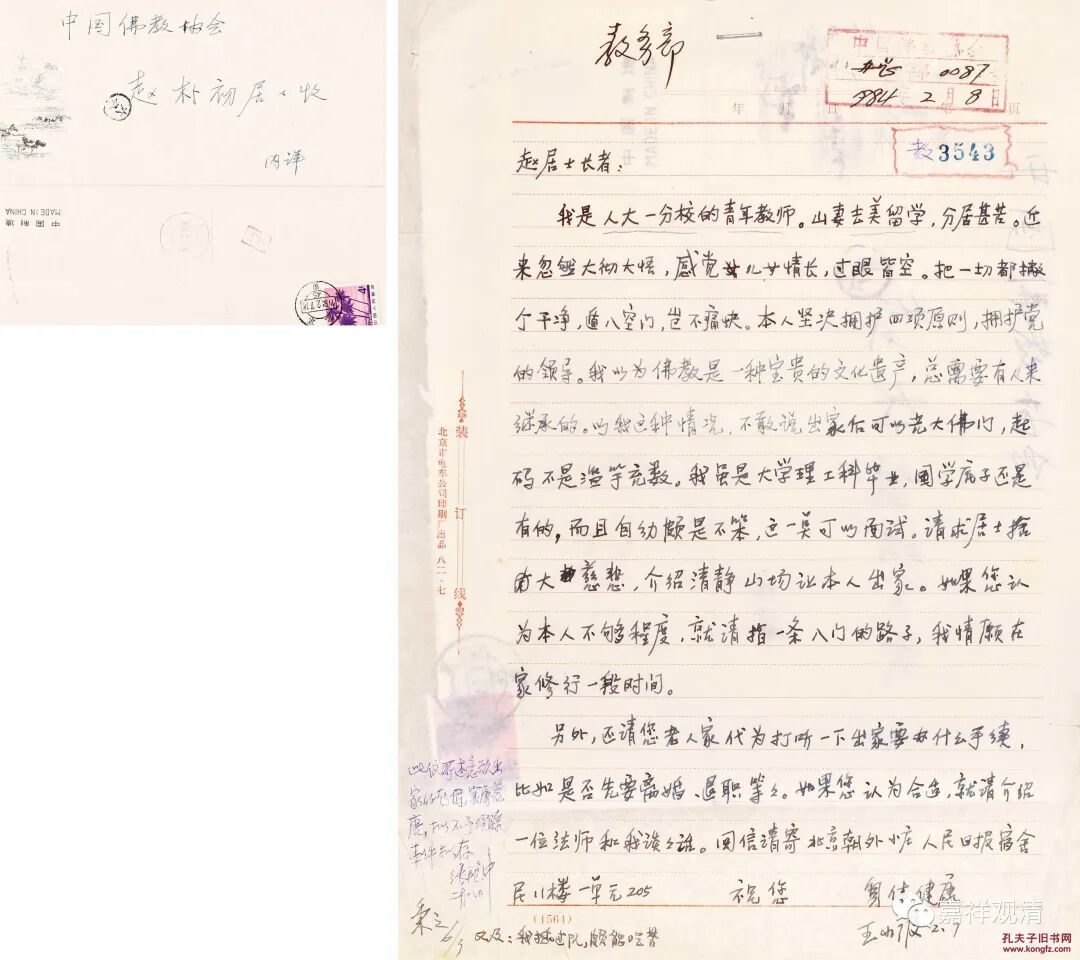 中国佛教协会
赵朴初居士收
内详
中国制造
MADE IN CHINA
教务部
0087
1984年2月8日
年 月 日 第 页
教3543
赵居士长者：
我是人大一分校的青年教师。山妻去美留学，分居甚苦。近
来忽然大彻大悟，感觉儿女情长，过眼皆空。把一切都撇
个干净，遁入空门，岂不痛快。本人坚决拥护四项原则，拥护党
的领导。我以为佛教是一种宝贵的文化遗产，总需要有人来
继承的。以我这种情况，不敢说出家后可以光大佛门，起
码不是滥竽充数。我虽是大学理工科毕业，国学底子还是
有的，而且自幼颇是不笨，这一点可以面试。请求居士
大慈悲，介绍清静山场让本人出家。如果您认
为本人不够程度，就请指一条入门的路子，我情愿在
家修行一段时间。
另外，还请您老人家代为打听一下出家要办什么手续，
比如是否先要离婚、退职等等。如果您认为合适，就请介绍
一位法师和我谈谈。回信请寄北京朝外小庄人民日报宿舍
民11楼一单元205 祝您 身体健康
王 2.7
又及：我插过队，颇能吃苦
装订线
北京市电车公司印刷厂出品 八二·七
(1564)
6/3
嘉祥观清
孔夫子旧书网
www.kongfz.com